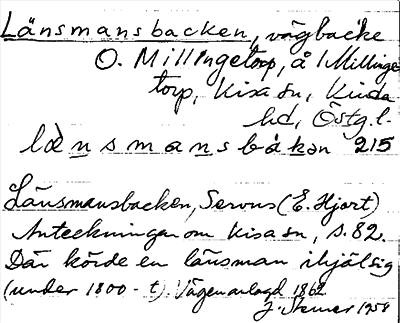 Länsmansbacken, vägbacke
O. Millingetorp, å 1 Millinge
torp, Kisa sn, Kinda
hd, Östg.l.
lànsmansbákən 215
Länsmansbacken, Servus (E. Hjort)
Anteckningar om Kisa sn, s. 82.
Där körde en länsman ihjäl sig
(under 1800-t). Vägen anlagd 1862
J. 1958